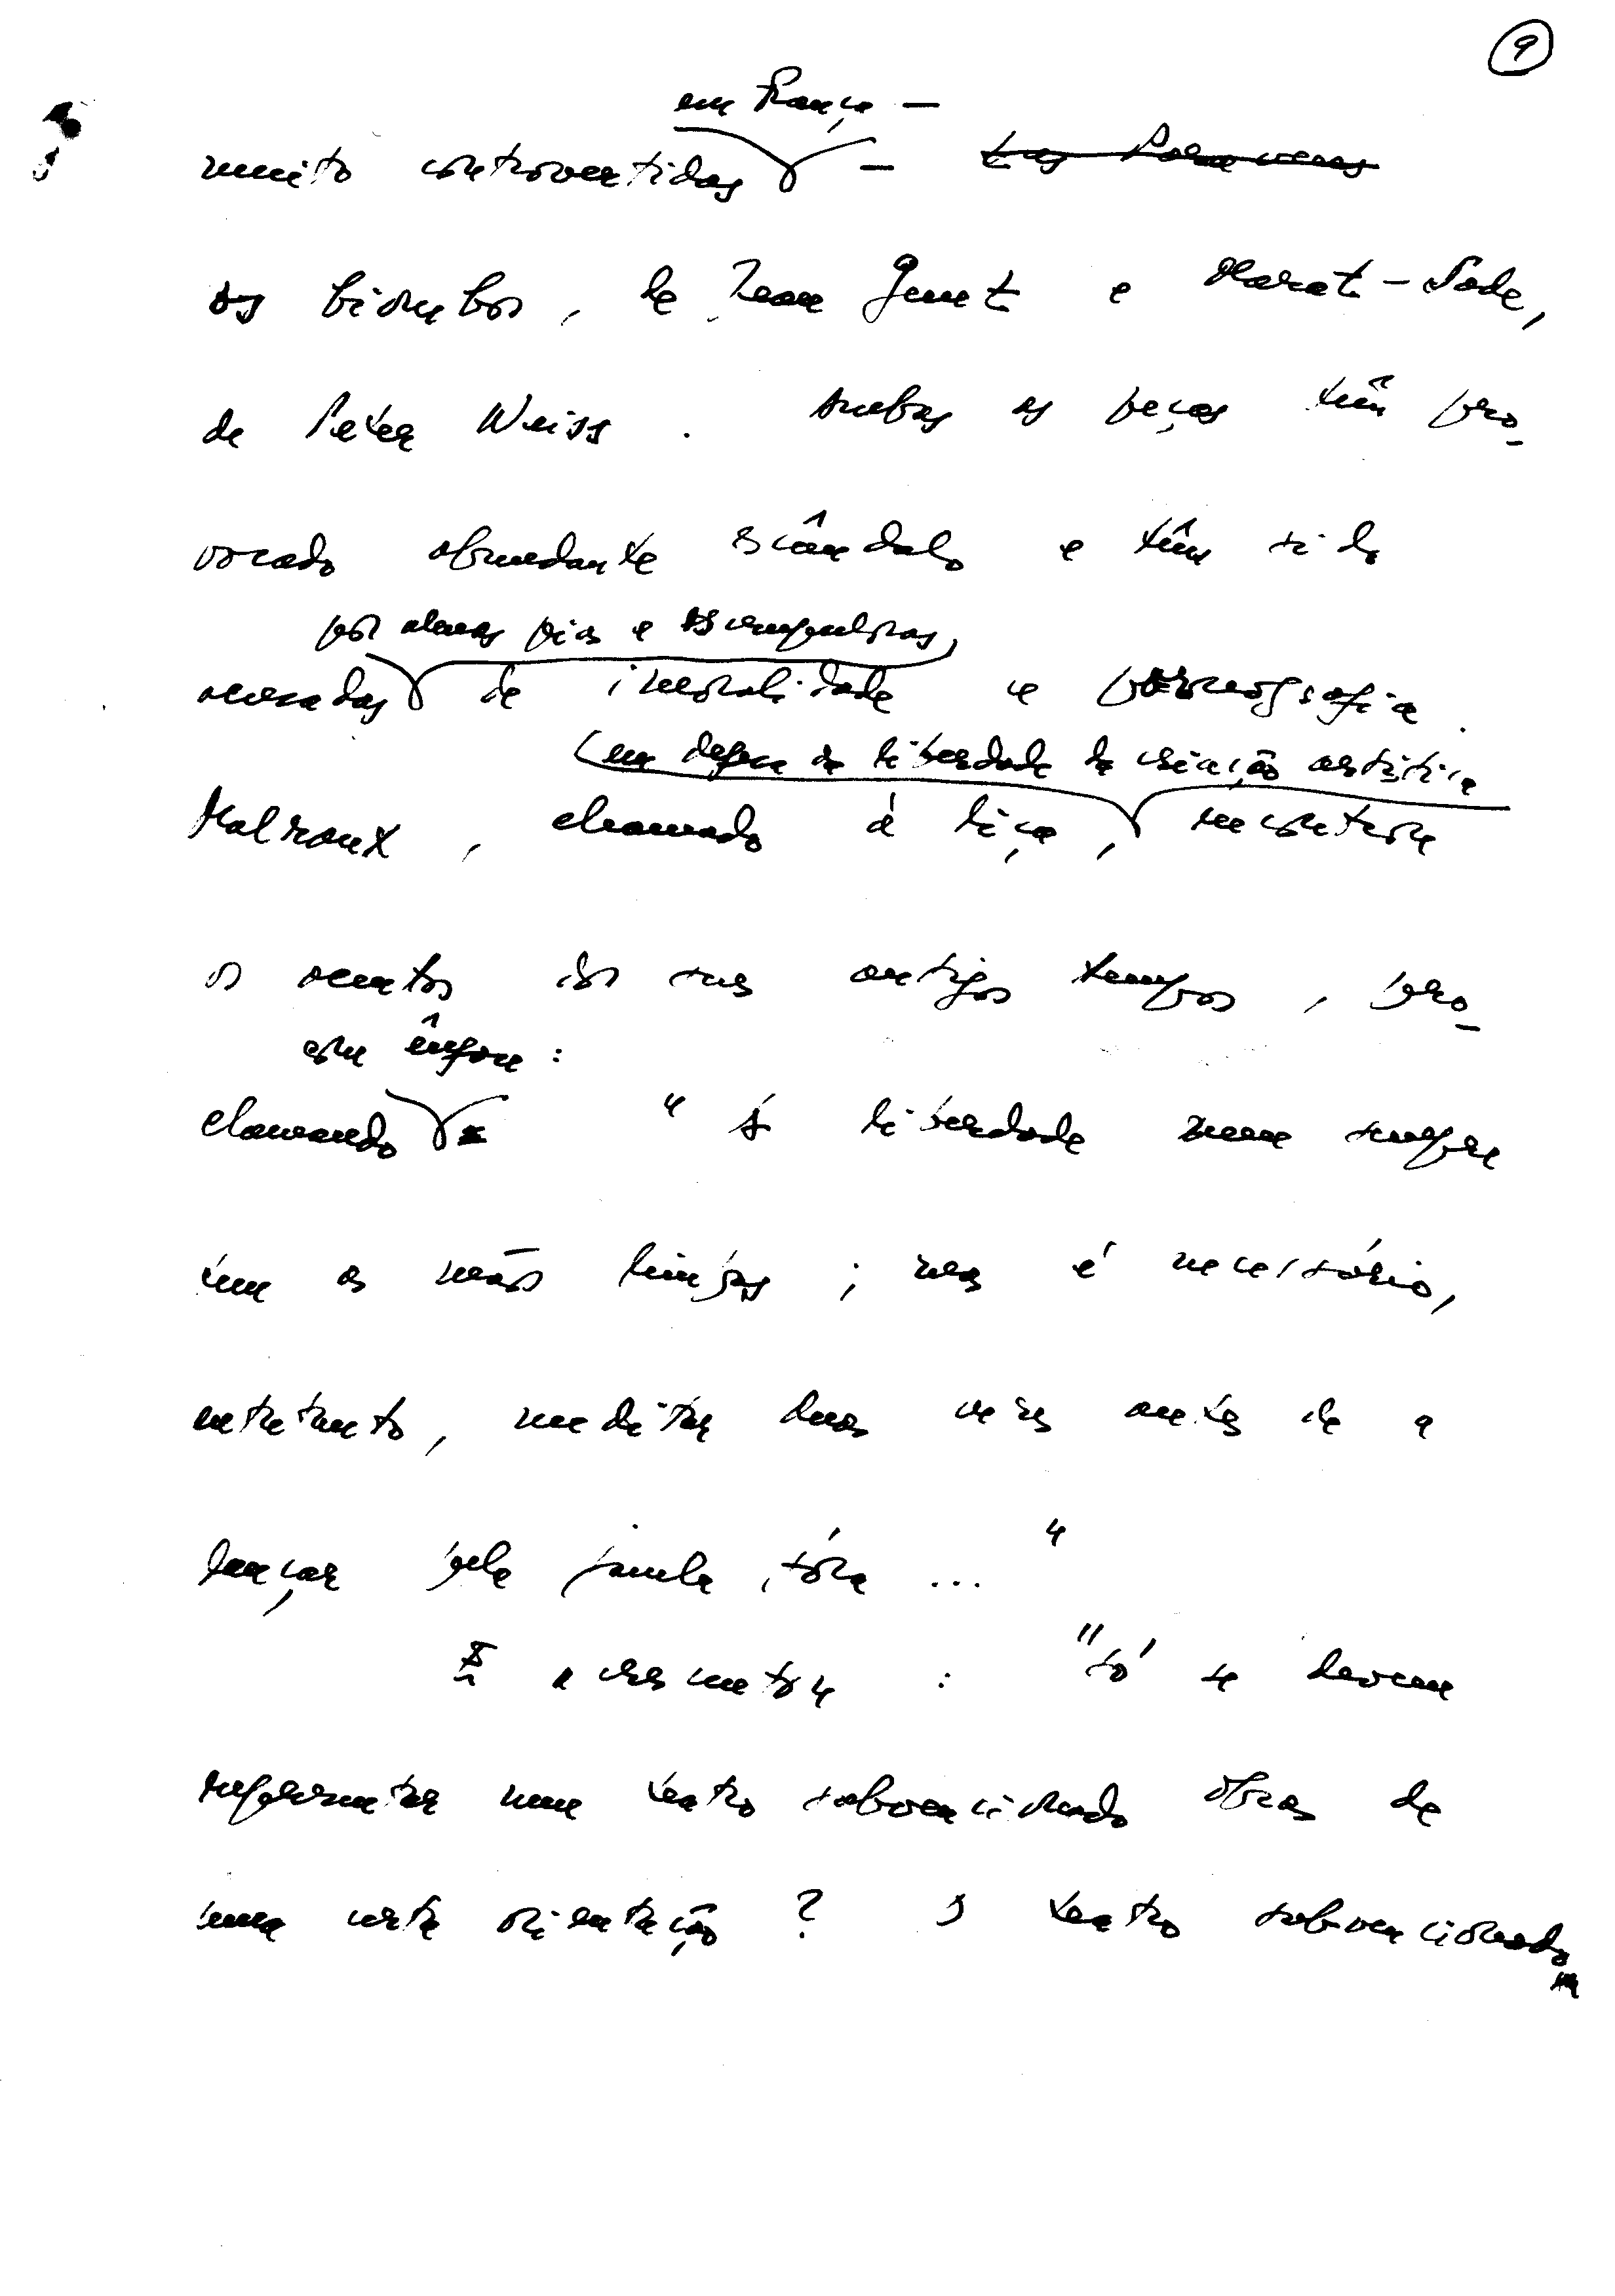 9
em França –
muito controvertidas – Les Paravents
os biombos, de Jean Genet e Marat-Sade,
de Peter Weiss. Ambas as peças têm pro-
vocado abundante escândalo e têm sido
por almas pias e escrupulosas,
acusadas de imoralidade e pornografia.
em defesa da liberdade de criação artística
Malraux, chamado à liça, reencontrou
os acentos dos seus antigos tempos, pro-
com ênfase:
clamando "A liberdade nem sempre
tem as mãos limpas; mas é necessário,
entretanto, meditar duas vezes antes de a
lançar pela janela fora..."
E acrescentou: "Só se devem
representar num teatro subvencionado obras de
uma certa orientação? O teatro subvencionado